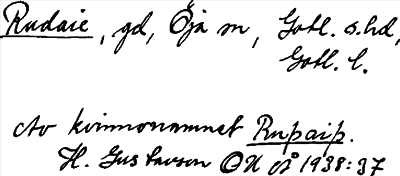 Rudaie, gd, Öja sn, Gotl. s. hd,
Gotl. l.
Av kvinnonamnet Rupaiþ.
H. Gustavson ON så 1938:37